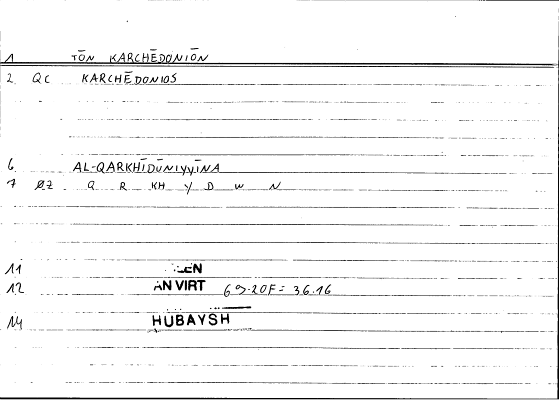 1 TŌN KARCHĒDONIŌN
2 QC KARCHĒDONIOS
6 AL-QARKHĪDŪNIYYĪNA
7 ØZ Q R KH Y D W N
11
12 AN VIRT 69.20F = 36.16
14 HUBAYSH